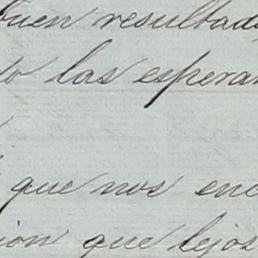 buen resultado
to las esperan
que nos enc
ion que lejos